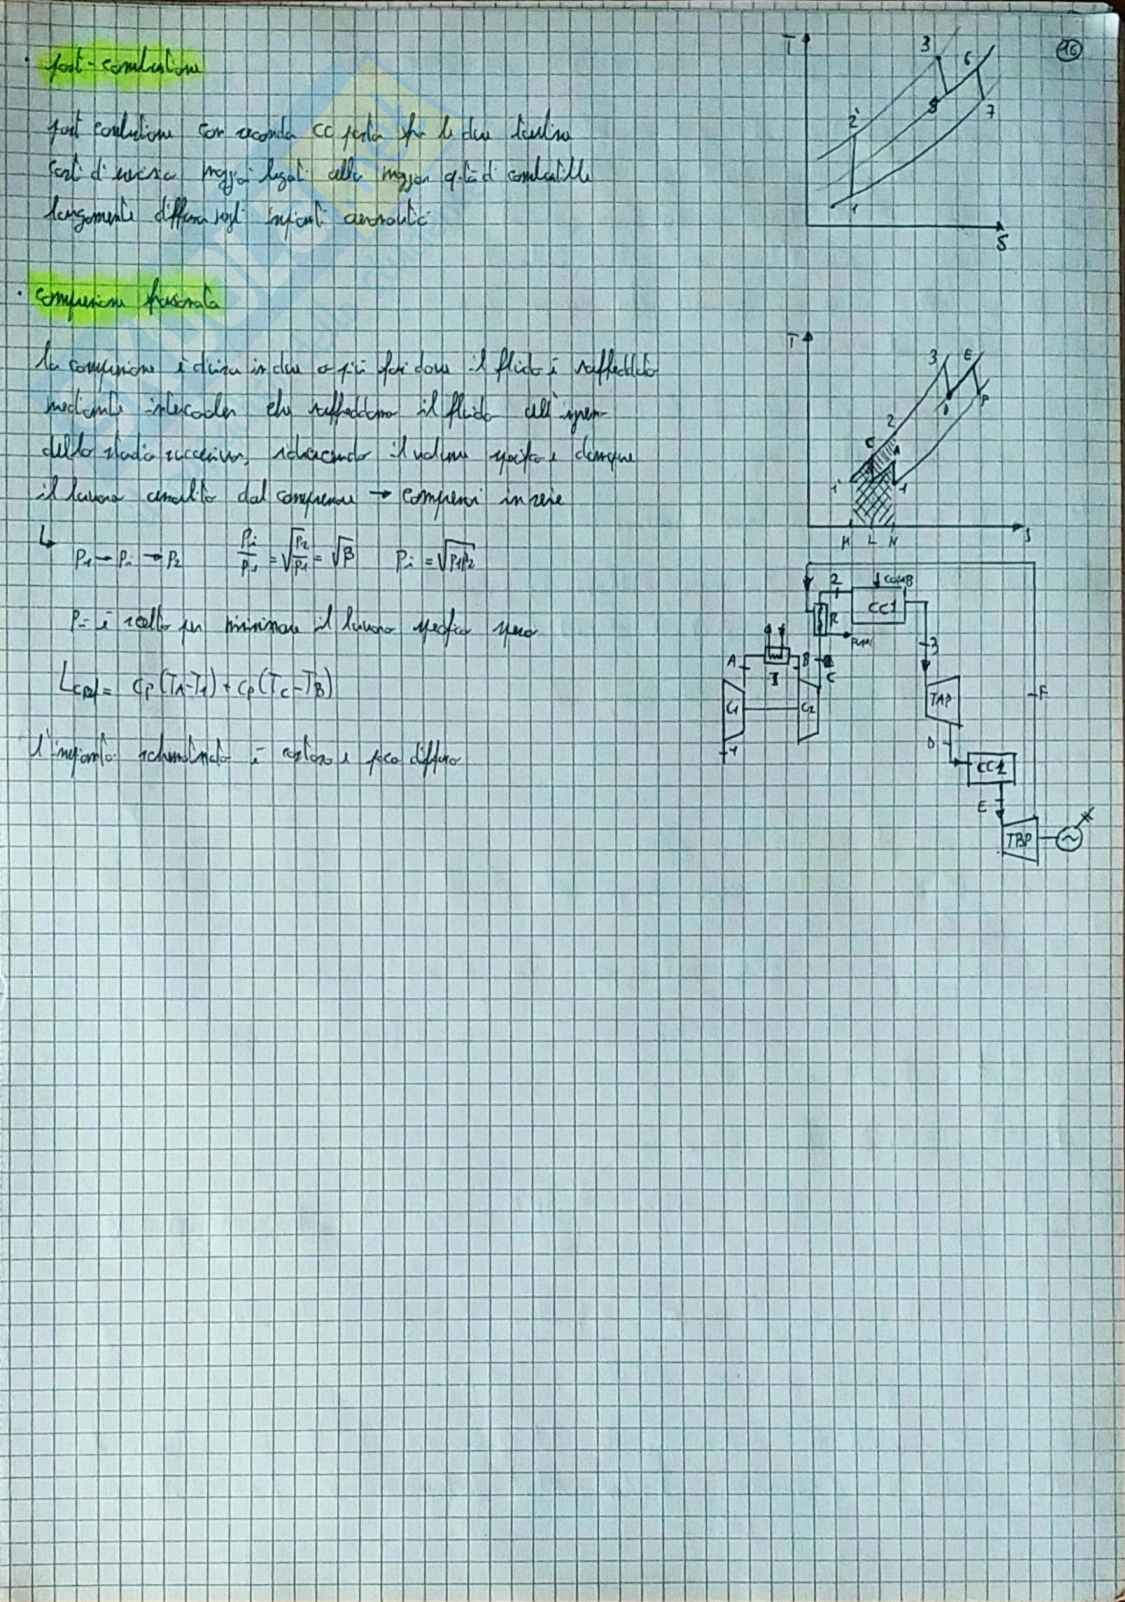 16
post-combustione
post combustione con seconda CC posta fra le due turbine
costi d'esercizio maggiori legati alla maggior q.tà di combustibile
largamente diffusa negli impianti aeronautici
T
3
6
2
5
7
1
S
compressione frazionata
la compressione è divisa in due o più fasi dove il fluido è raffreddato
mediante intercooler che raffreddano il fluido all'ingresso
dello stadio successivo, riducendo il volume specifico e dunque
il lavoro assorbito dal compressore → compressori in serie
P1 → Pi → P2 Pi/P1 = √(P2/P1) = √β Pi = √(P1P2)
Pi è scelto per minimizzare il lavoro specifico speso
L = cp(TA-T1) + cp(TC-TB)
l'impianto schematizzato è costoso e poco diffuso
T
3 E
2
C
A
D
F
1' 1
M L N
S
2 COMB
R CC1
FUMI
3
A B
I C
C1 C2
1
TAP
F
D
CC2
E
TBP